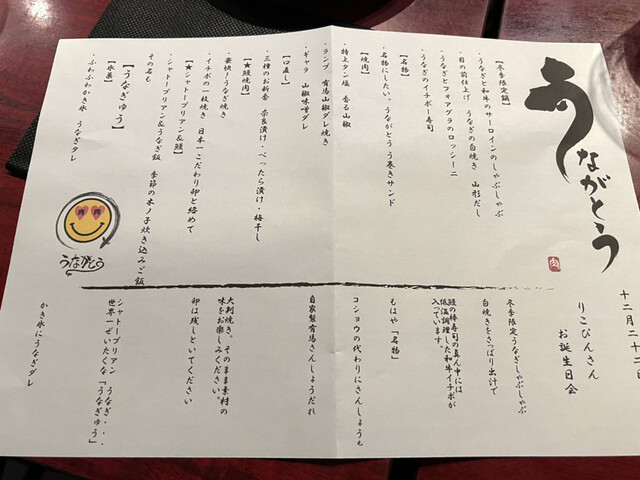 うながとう
肉
【冬季限定鍋】
・うなぎと和牛のサーロインのしゃぶしゃぶ
・目の前仕上げ うなぎの白焼き 山形だし
・うなぎとフォアグラのロッシーニ
・うなぎのイチボ寿司
【名物】
・名物にしたい。うながとう う巻きサンド
【焼肉】
・特上タン塩 香る山椒
・ランプ 有馬山椒ダレ焼き
・ギャラ 山椒味噌ダレ
【口直し】
・三種のお新香 奈良漬け・べったら漬け・梅干し
【★鰻焼肉】
豪快!うなぎ焼き
イチボの一枚焼き 日本一こだわり卵と絡めて
【★シャトーブリアン&鰻】
・シャトーブリアン&うなぎ飯 季節の木ノ子炊き込みご飯
その名も
【うなぎゅう】
【氷菓】
・ふわふわかき氷 うなぎタレ
うながとう
十二月二十二日
りこぴんさん
お誕生日会
冬季限定うなぎしゃぶしゃぶ
白焼きをさっぱり出汁で
鰻の棒寿司の真ん中には
低温調理した和牛イチボが
入っています。
もはや「名物」
コショウの代わりにさんしょうも
自家製有馬さんしょうだれ
大判焼き。そのまま素材の
味をお楽しみください。
卵は残しといてください
シャトーブリアン うなぎ・・・
世界一ぜいたくな「うなぎゅう」
かき氷にうなぎダレ